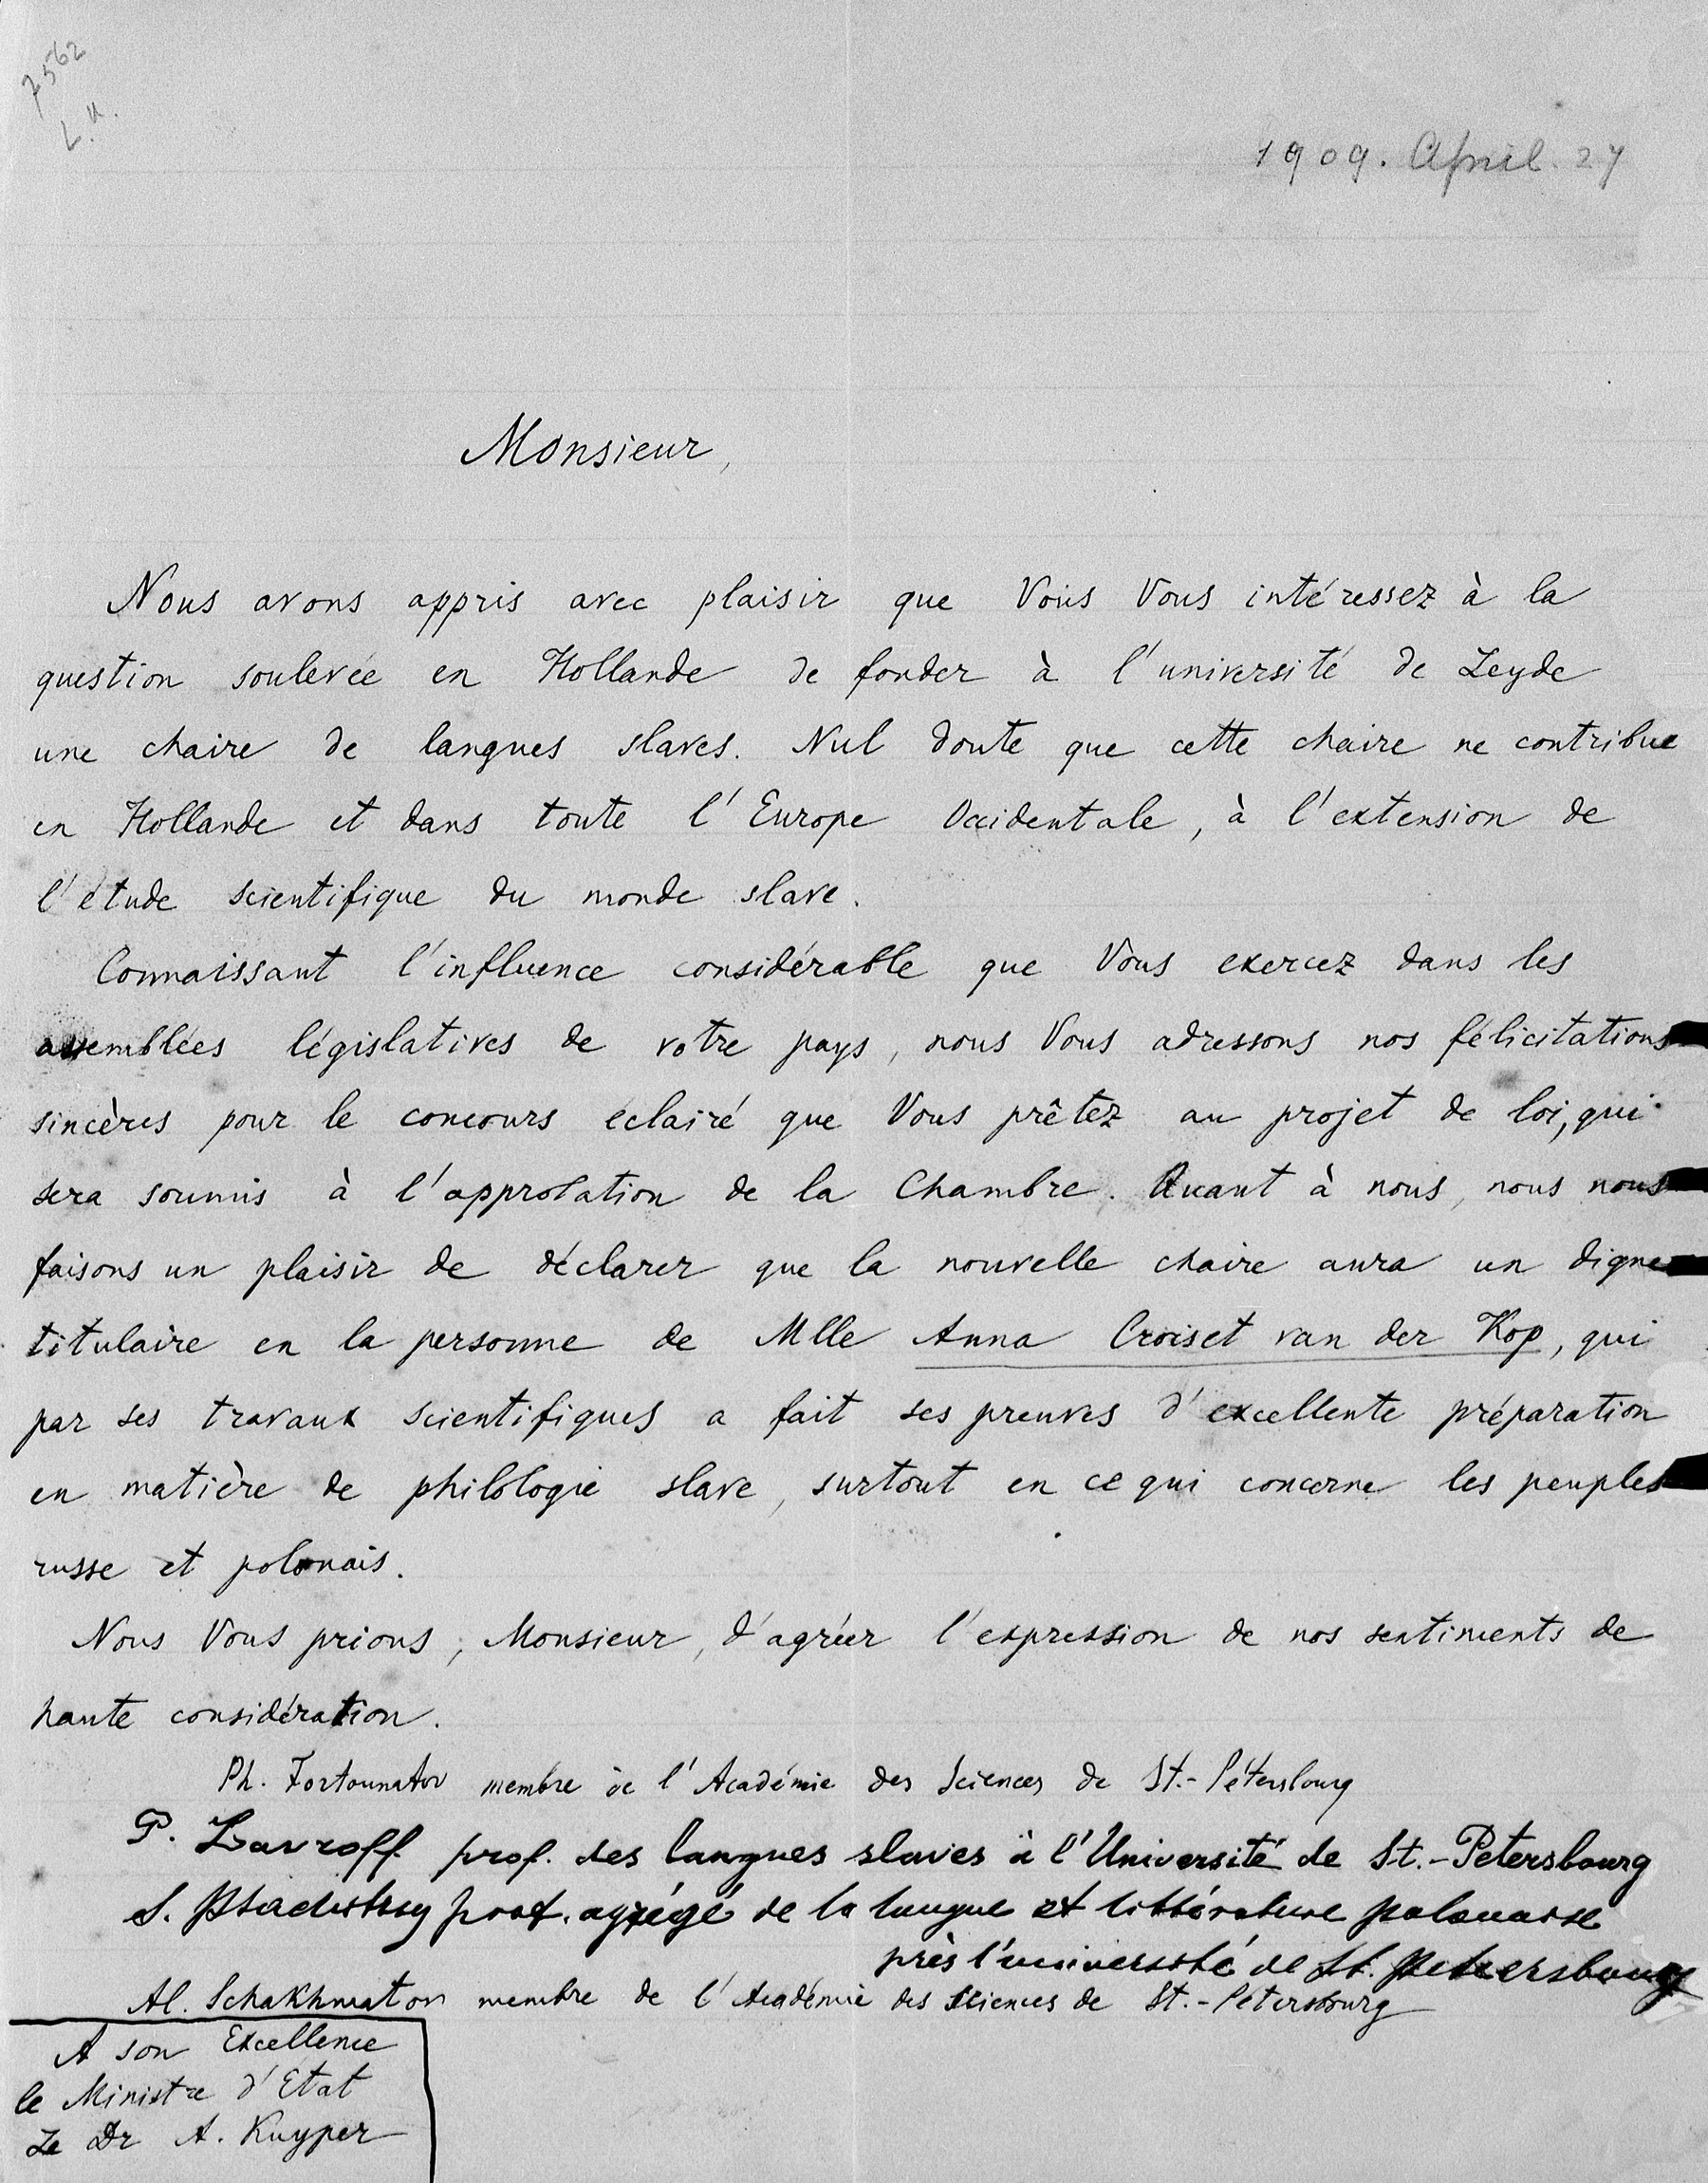 7562
L.U.
1909. April. 27
Monsieur,
Nous avons appris avec plaisir que Vous Vous intéressez à la
question soulevée en Hollande de fonder à l'université de Leyde
une chaire de langues slaves. Nul doute que cette chaire ne contribue
en Hollande et dans toute l'Europe Occidentale, à l'extension de
l'étude scientifique du monde slave.
Connaissant l'influence considérable que Vous exercez dans les
assemblées législatives de votre pays, nous Vous adressons nos félicitations
sincères pour le concours éclairé que Vous prêtez au projet de loi, qui
sera soumis à l'approbation de la Chambre. Quant à nous, nous nous
faisons un plaisir de déclarer que la nouvelle chaire aura un digne
titulaire en la personne de Mlle Anna Croiset van der Kop, qui
par ses travaux scientifiques a fait ses preuves d'excellente préparation
en matière de philologie slave, surtout en ce qui concerne les peuples
russe et polonais.
Nous Vous prions, Monsieur, d'agréer l'expression de nos sentiments de
haute considération.
Ph. Fortounatov membre de l'Académie des Sciences de St.-Pétersbourg
P. Lavroff prof. des langues slaves à l'Université de St.-Petersbourg
S. Ptschitsky prof. agrégé de la langue et littérature polonaise
près l'université de St. Petersbourg
Al. Schakhmatov membre de l'Académie des Sciences de St.-Petersbourg
A son Excellence
le Ministre d'Etat
Le Dr A. Kuyper